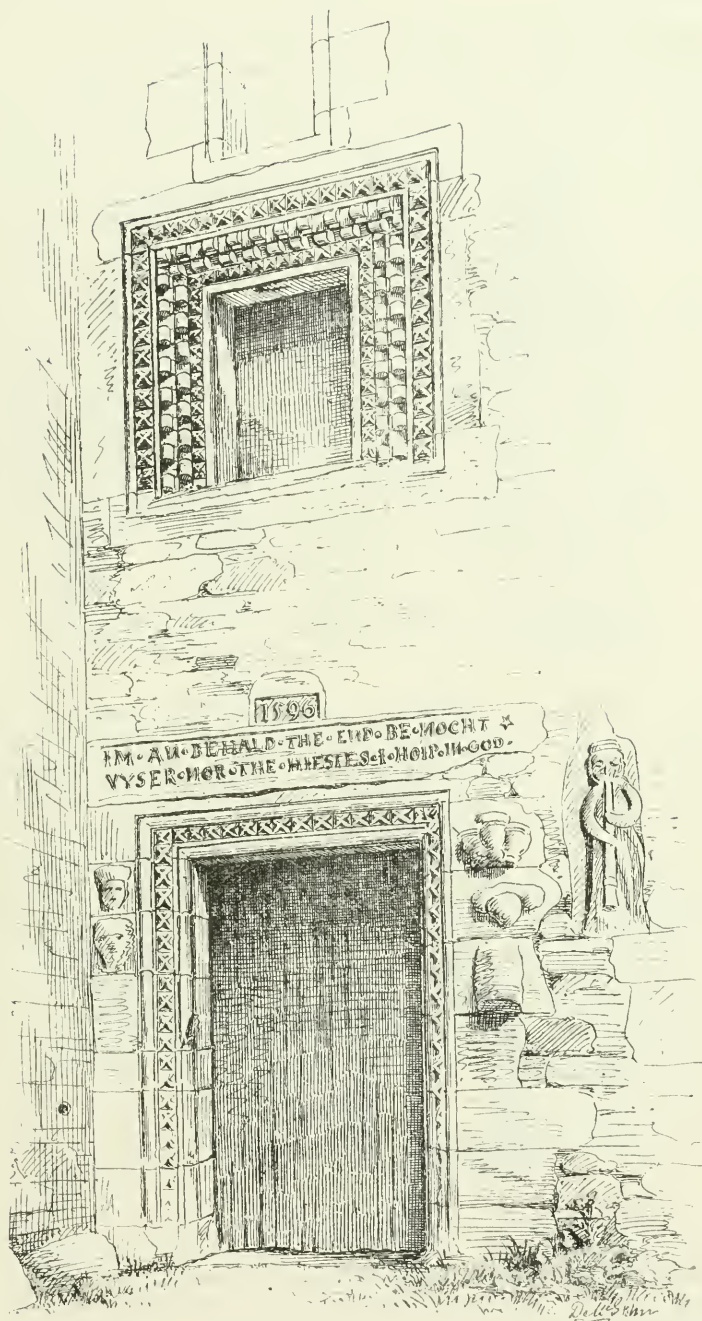 1596
IM · AU · BEHALD · THE · END · BE · NOCHT ☆
VYSER · NOR · THE · HIESTES · I · HOIP · IN · GOD ·